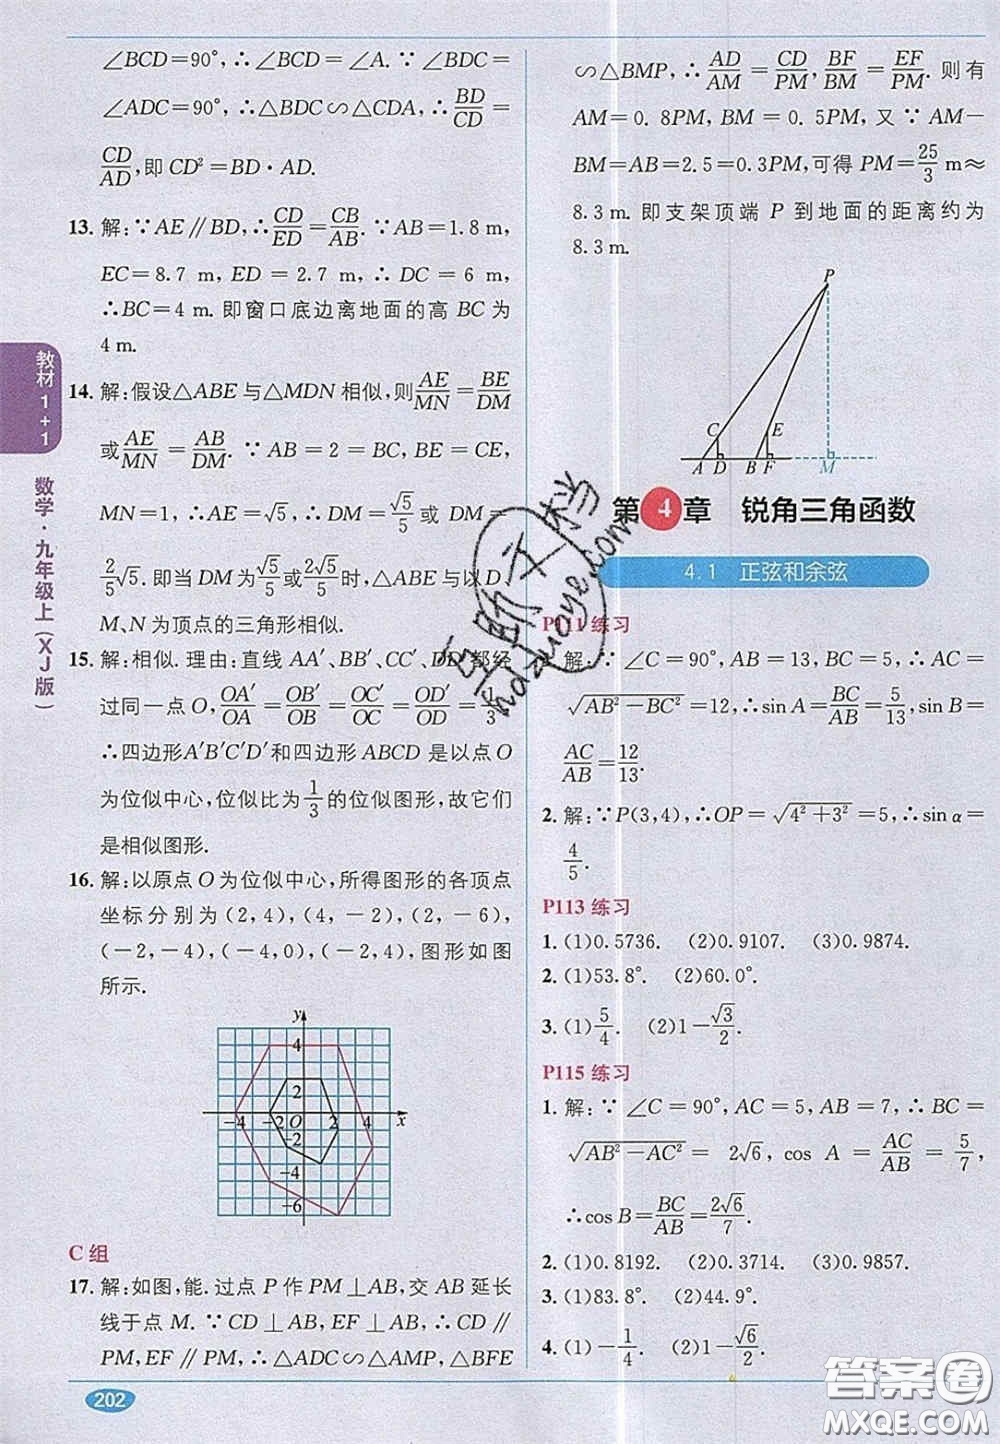 ∠BCD=90°,∴∠BCD=∠A.∵∠BDC=
∠ADC=90°,∴△BDC∽△CDA,∴BD/CD=
CD/AD,即CD²=BD·AD.
13. 解:∵AE∥BD,∴CD/ED=CB/AB.∵AB=1.8 m,
EC=8.7 m,ED=2.7 m,∴DC=6 m,
∴BC=4 m.即窗口底边离地面的高BC为
4 m.
14. 解:假设△ABE与△MDN相似,则AE/MN=BE/DM
或AE/MN=AB/DM.∵AB=2=BC,BE=CE,
MN=1,∴AE=√5,∴DM=√5/5或DM=
2/5√5.即当DM为√5/5或2√5/5时,△ABE与以D、
M、N为顶点的三角形相似.
15. 解:相似.理由:直线AA′、BB′、CC′、DD′都经
过同一点O,OA′/OA=OB′/OB=OC′/OC=OD′/OD=1/3
∴四边形A′B′C′D′和四边形ABCD是以点O
为位似中心,位似比为1/3的位似图形,故它们
是相似图形.
16. 解:以原点O为位似中心,所得图形的各顶点
坐标分别为(2,4),(4,-2),(2,-6),
(-2,-4),(-4,0),(-2,4),图形如图
所示.
y
4
2
-4 -2 O 2 4 x
-2
-4
-6
C组
17. 解:如图,能.过点P作PM⊥AB,交AB延长
线于点M.∵CD⊥AB,EF⊥AB,∴CD∥
PM,EF∥PM,∴△ADC∽△AMP,△BFE
202
教材1+1
数学·九年级上(XJ版)
∽△BMP,∴AD/AM=CD/PM,BF/BM=EF/PM.则有
AM=0.8PM,BM=0.5PM,又∵AM-
BM=AB=2.5=0.3PM,可得PM=25/3 m≈
8.3 m.即支架顶端P到地面的距离约为
8.3 m.
P
C E
A D B F M
第4章 锐角三角函数
4.1 正弦和余弦
P111练习
1. 解:∵∠C=90°,AB=13,BC=5,∴AC=
√(AB²-BC²)=12,∴sin A=BC/AB=5/13,sin B=
AC/AB=12/13.
2. 解:∵P(3,4),∴OP=√(4²+3²)=5,∴sin α=
4/5.
P113练习
1. (1)0.5736. (2)0.9107. (3)0.9874.
2. (1)53.8°. (2)60.0°.
3. (1)5/4. (2)1-√3/2.
P115练习
1. 解:∵∠C=90°,AC=5,AB=7,∴BC=
√(AB²-AC²)=2√6,cos A=AC/AB=5/7,
∴cos B=BC/AB=2√6/7.
2. (1)0.8192. (2)0.3714. (3)0.9857.
3. (1)83.8°. (2)44.9°.
4. (1)-1/4. (2)1-√6/2.
答案圈
MXQE.COM